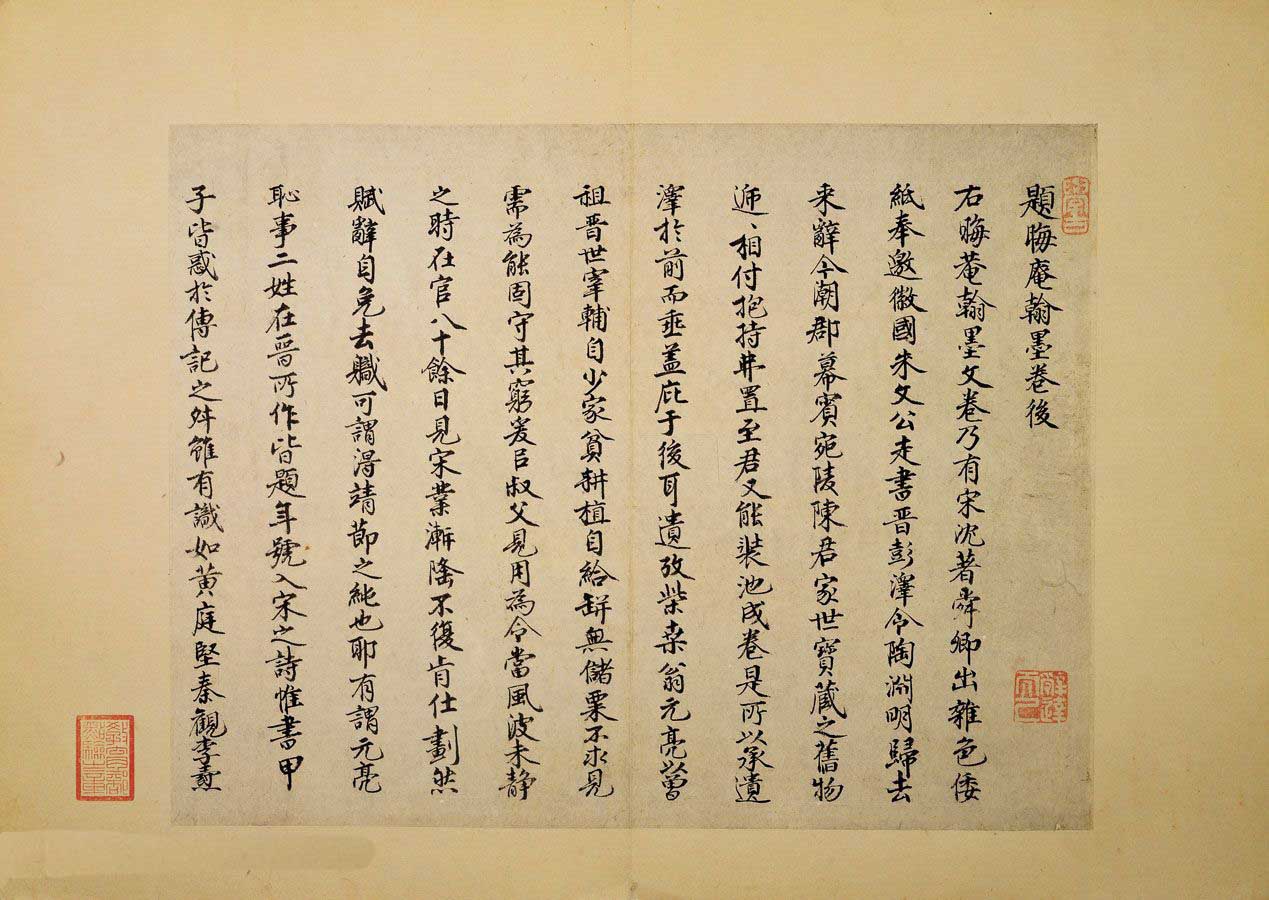 題晦庵翰墨卷後
右晦菴翰墨文卷乃有宋沈著舜卿出雜色倭
紙奉邀徽國朱文公走書晉彭澤令陶淵明歸去
来辭今潮郡幕賓宛陵陳君家世寶藏之舊物
逓〻相付抱持弆置至君又能裝池成卷是所以承遺
澤於前而垂蓋庇于後耳遺攷柴桒翁元亮以曾
祖晉世宰輔自少家貧耕植自給缾無儲粟不求見
需為能固守其窮爰呂叔父見用為令當風波未静
之時在官八十餘日見宋業漸隆不復肯仕劃然
賦辭自免去軄可謂淂靖節之純也耶有謂元亮
恥事二姓在晉所作皆題年號入宋之詩惟書甲
子皆惑於傳記之舛雖有識如黄庭堅秦觀李燾